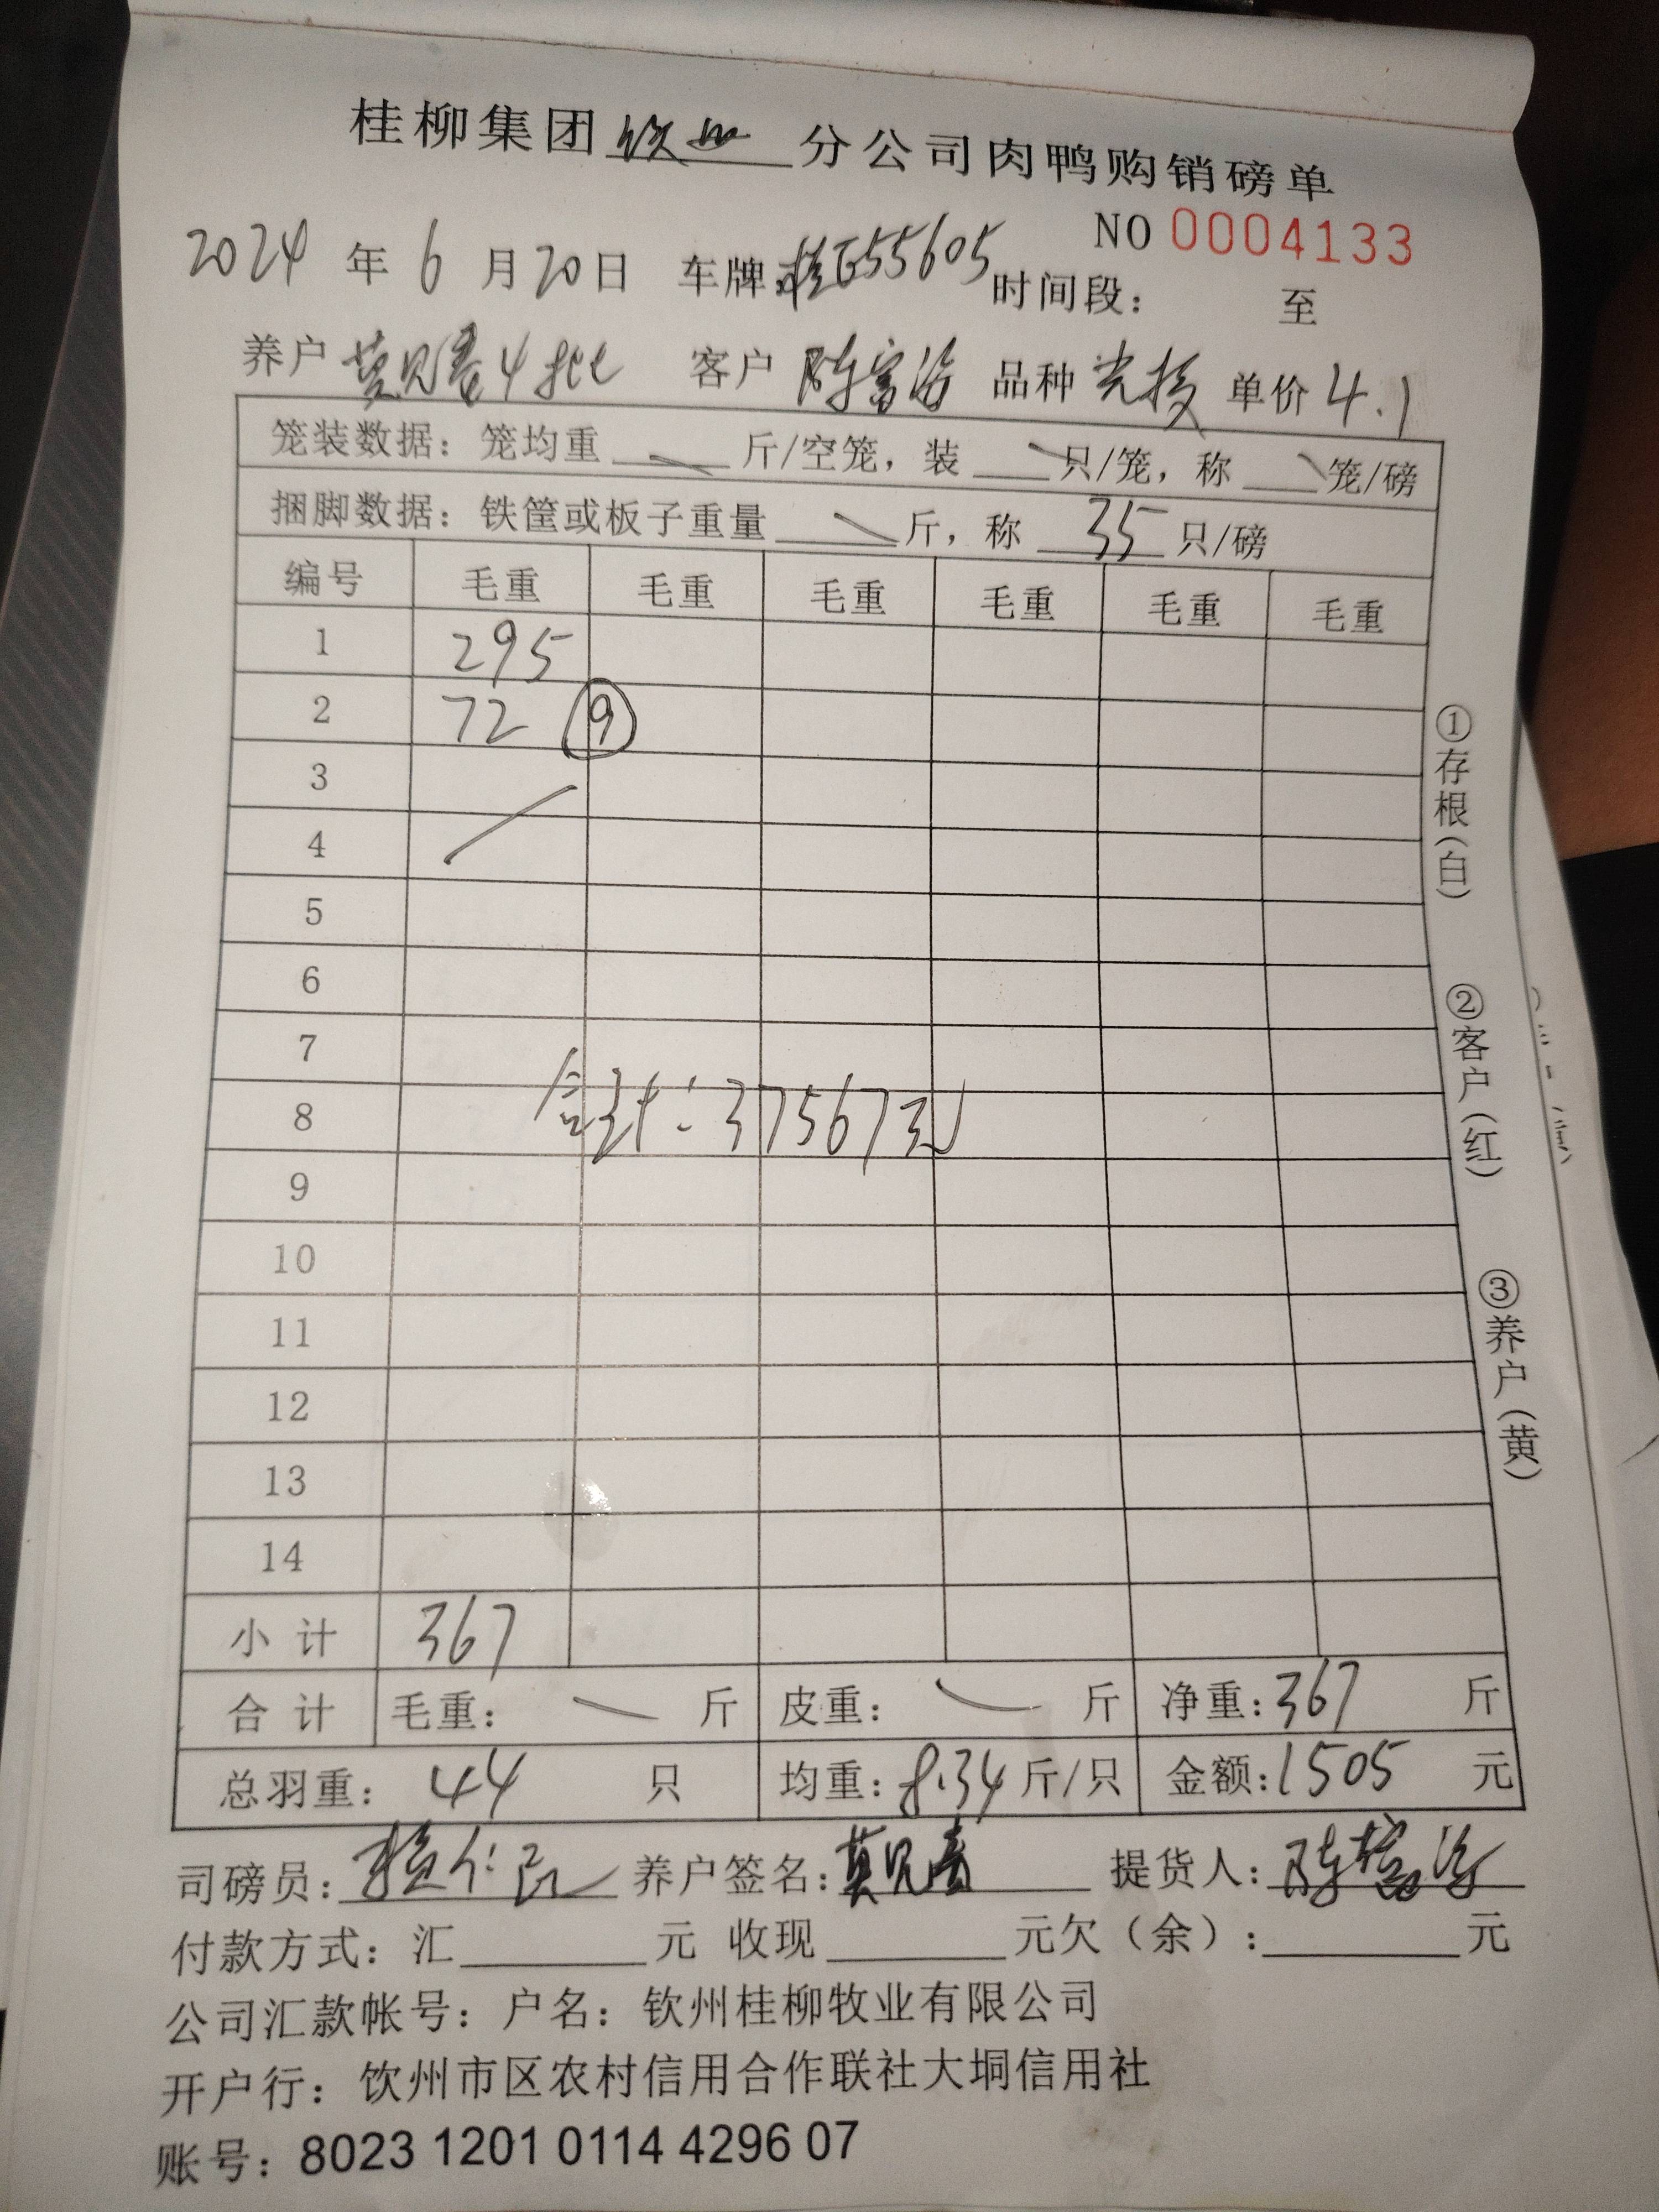 桂柳集团钦州分公司肉鸭购销磅单
NO 0004133
2024年6月20日 车牌:桂E55605 时间段: 至
养户 莫见春4批 客户 陈富 品种 单价4.1
笼装数据:笼均重 斤/空笼,装 只/笼,称 笼/磅
捆脚数据:铁筐或板子重量 斤,称 35 只/磅
编号 毛重 毛重 毛重 毛重 毛重 毛重
1 295
2 72 ⑨
3
4
5
6
7
8 合计:37567元
9
10
11
12
13
14
小计 367
合计 毛重: 斤 皮重: 斤 净重:367 斤
总羽重:44 只 均重:8.34斤/只 金额:1505 元
司磅员: 仁 养户签名:莫见春 提货人:陈富
付款方式:汇 元 收现 元欠(余): 元
公司汇款帐号:户名:钦州桂柳牧业有限公司
开户行:钦州市区农村信用合作联社大垌信用社
账号:8023 1201 0114 4296 07
①存根(白)
②客户(红)
③养户(黄)